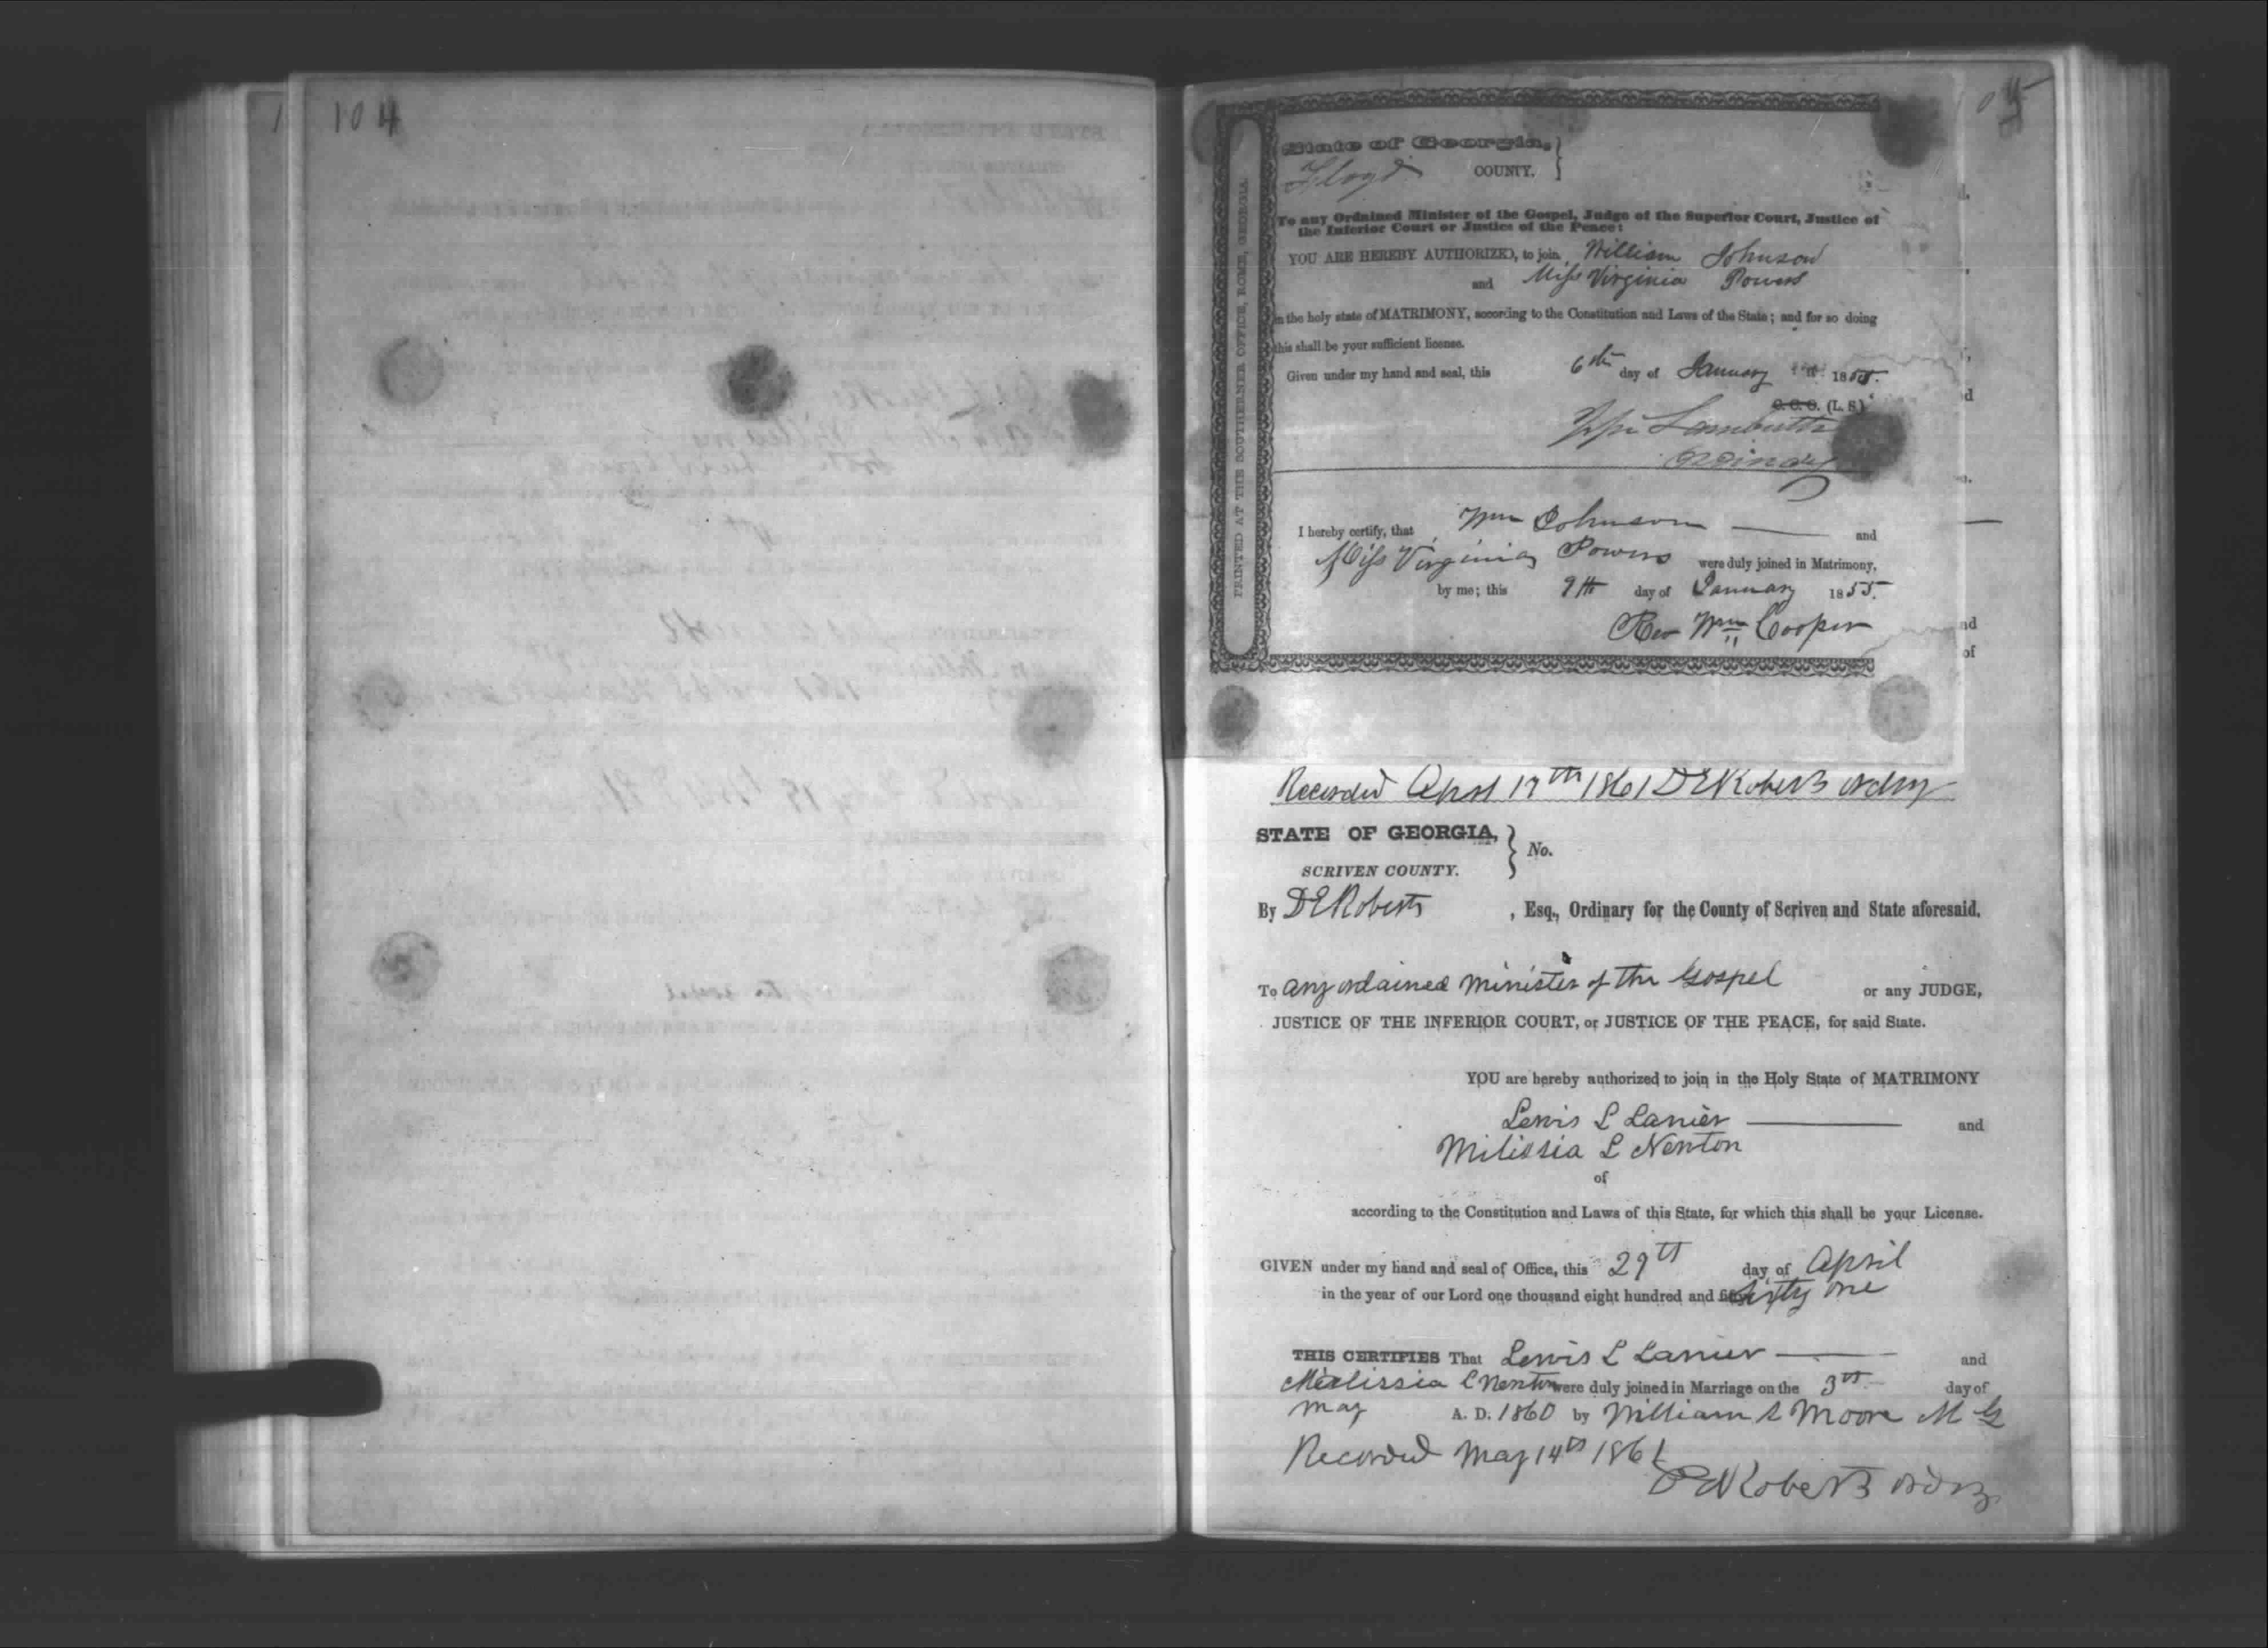 104
State of Georgia,
Floyd COUNTY.
To any Ordained Minister of the Gospel, Judge of the Superior Court, Justice of
the Inferior Court or Justice of the Peace:
YOU ARE HEREBY AUTHORIZED, to join William Johnson
and Miss Virginia Powers
in the holy state of MATRIMONY, according to the Constitution and Laws of the State; and for so doing
this shall be your sufficient license.
Given under my hand and seal, this 6th day of January 1855.
C. C. O. (L. S.)
Lambutte
Ordinary
I hereby certify, that Wm Johnson and
Miss Virginia Powers were duly joined in Matrimony,
by me; this 9th day of January 1855.
Rev Wm Cooper
PRINTED AT THE SOUTHERNER OFFICE, ROME, GEORGIA.
Recorded April 17th 1861 D E Roberts ordry
STATE OF GEORGIA,
SCRIVEN COUNTY. No.
By D E Roberts , Esq., Ordinary for the County of Scriven and State aforesaid.
To any ordained minister of the Gospel or any JUDGE,
JUSTICE OF THE INFERIOR COURT, or JUSTICE OF THE PEACE, for said State.
YOU are hereby authorized to join in the Holy State of MATRIMONY
Lewis L Lanier and
Milissia L Newton
of
according to the Constitution and Laws of this State, for which this shall be your License.
GIVEN under my hand and seal of Office, this 29th day of April
in the year of our Lord one thousand eight hundred and sixty one
THIS CERTIFIES That Lewis L Lanier and
Milissia L Newton were duly joined in Marriage on the 3rd day of
May A. D. 1860 by William S Moore M G
Recorded May 14th 1861
D E Roberts ordry